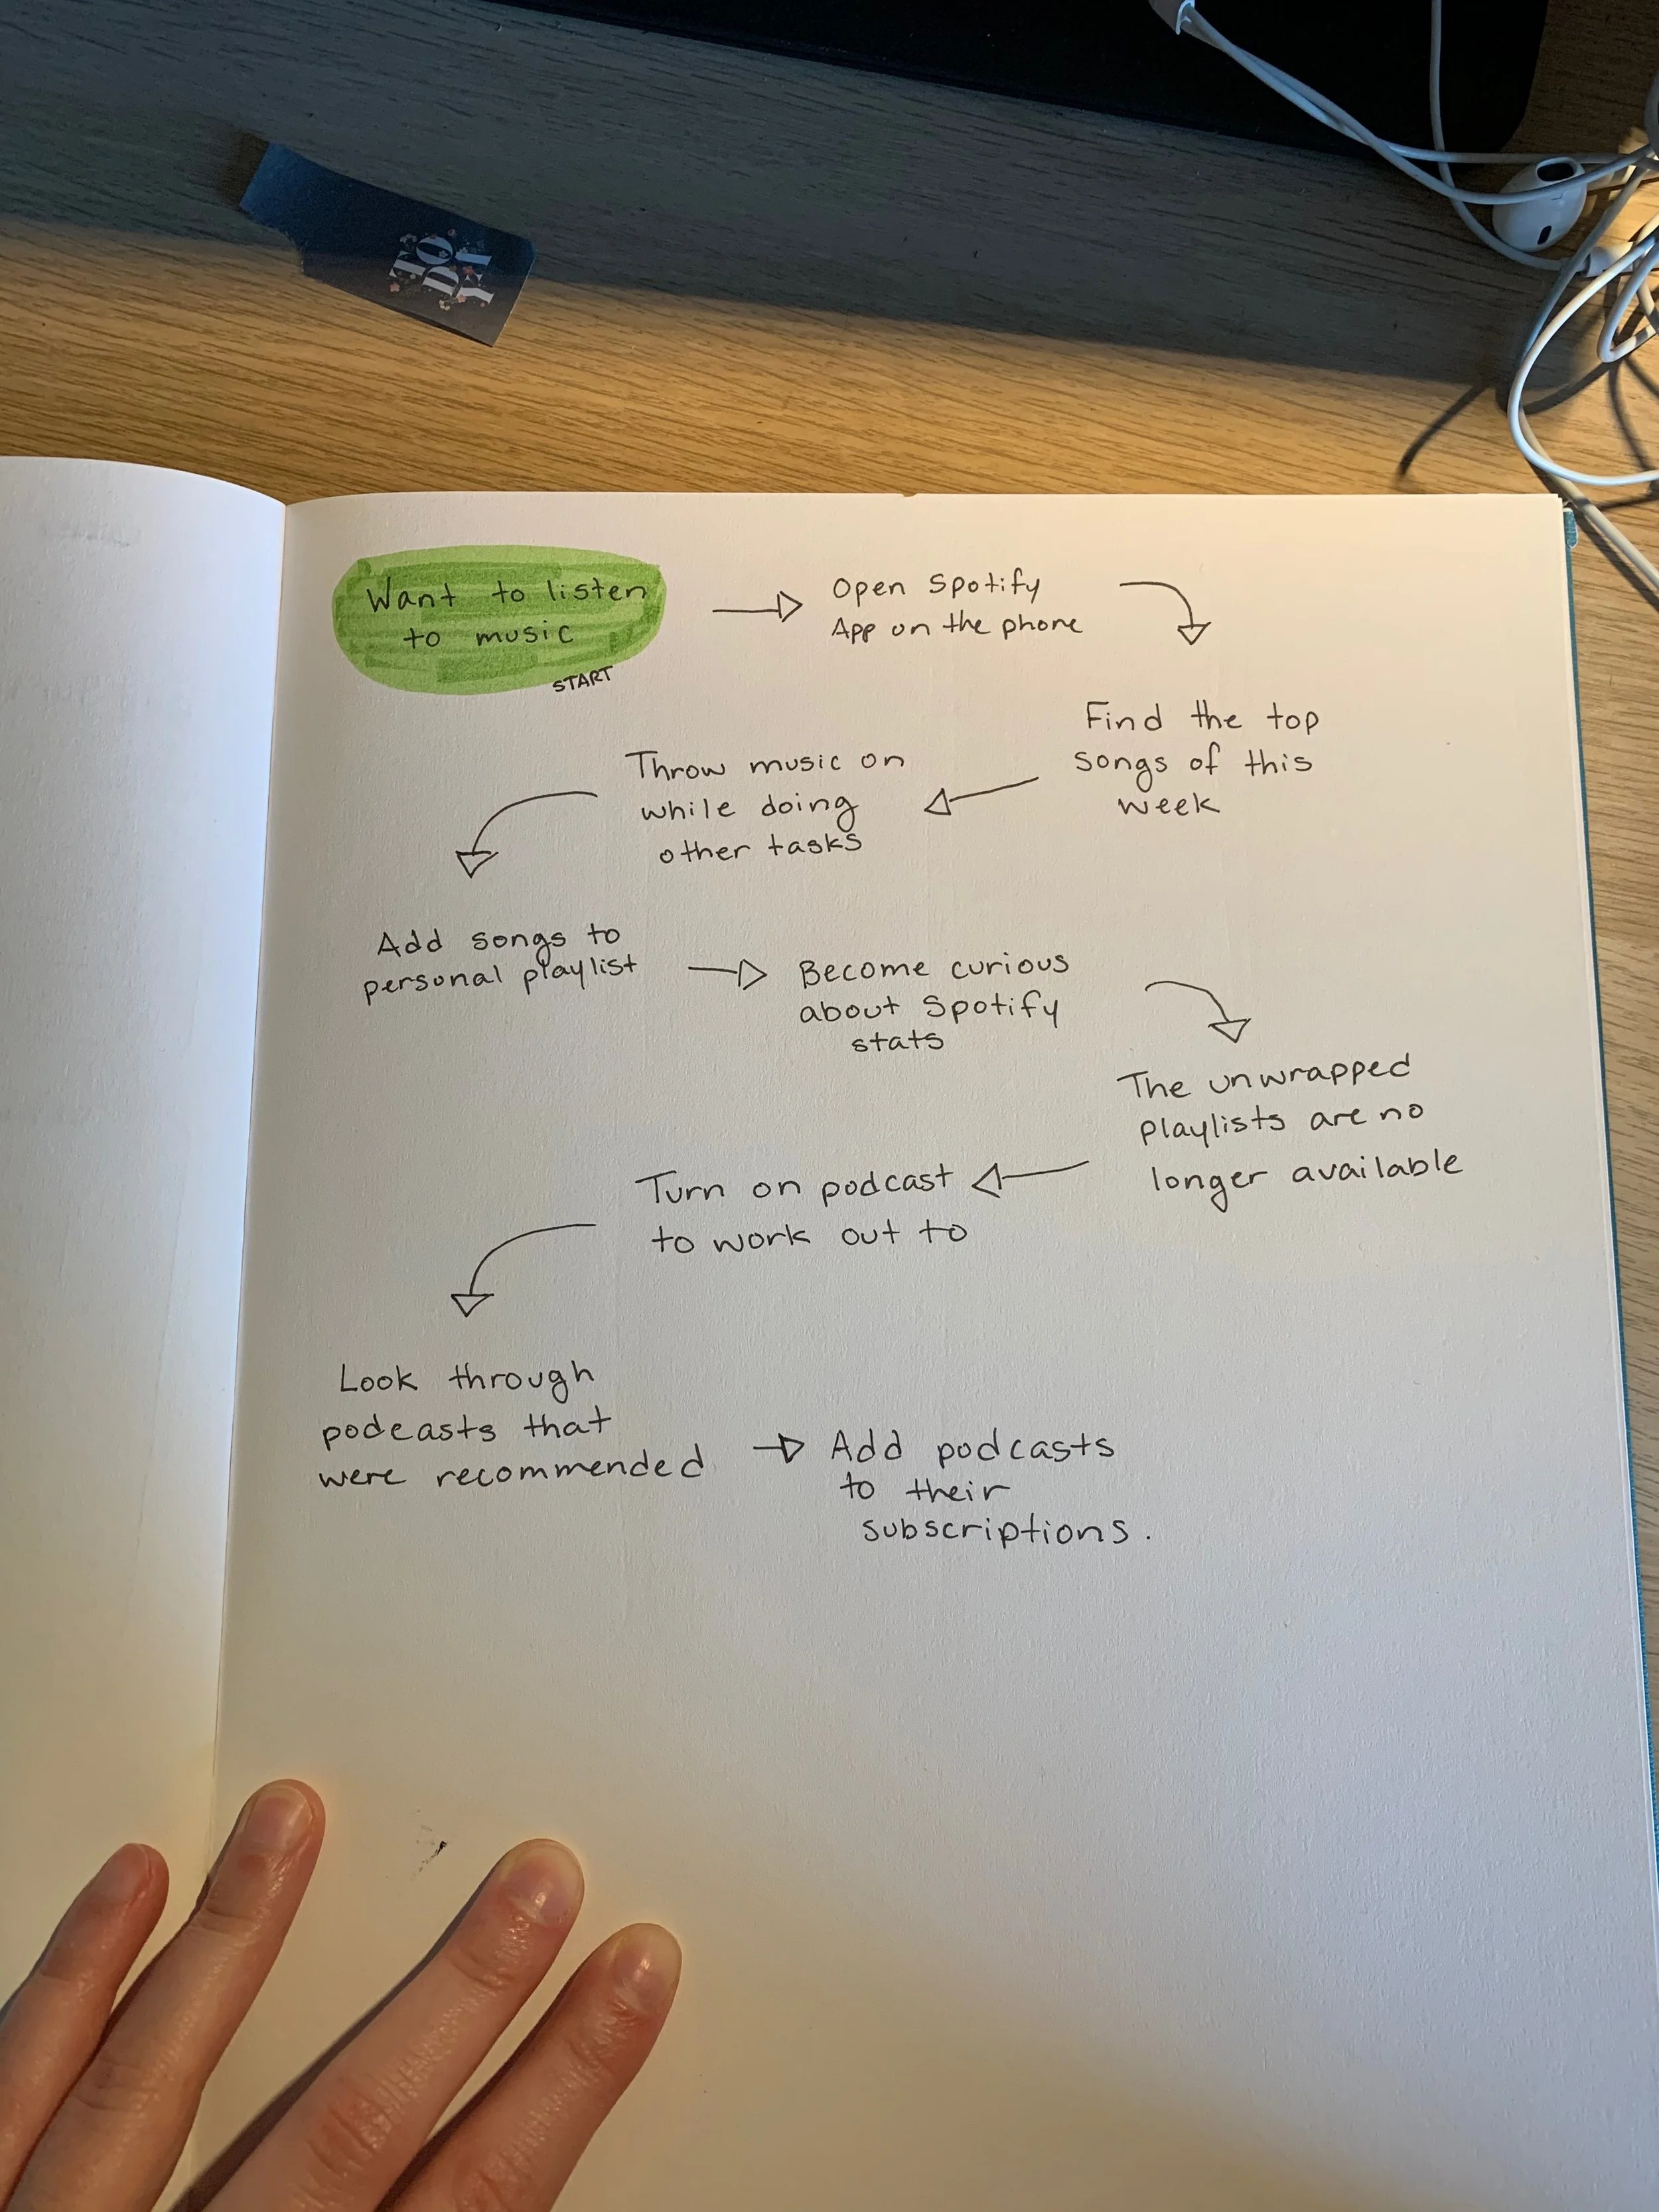 Want to listen
to music
START
Open Spotify
App on the phone
Find the top
songs of this
week
Throw music on
while doing
other tasks
Add songs to
personal playlist
Become curious
about Spotify
stats
The unwrapped
playlists are no
longer available
Turn on podcast
to work out to
Look through
podcasts that
were recommended
Add podcasts
to their
subscriptions.